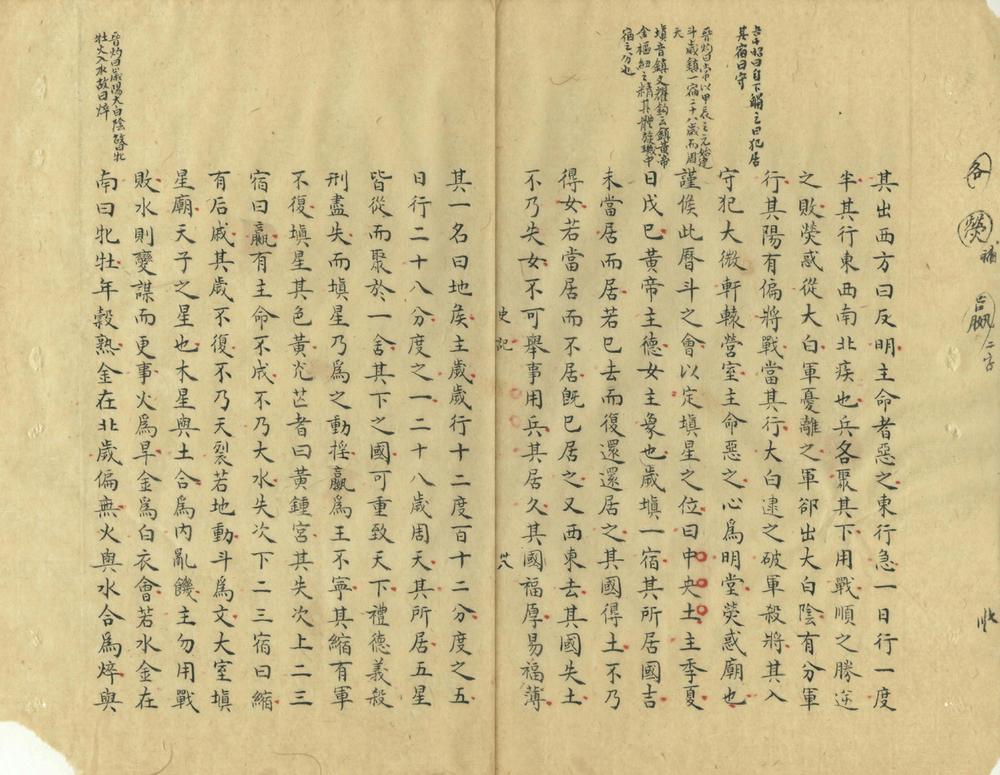 其出西方曰反明主命者惡之東行急一日行一度
半其行東西南北疾也兵各聚其下用戰順之勝逆
之敗熒惑從大白軍憂離之軍郤出大白陰有分軍
行其陽有偏將戰當其行大白逮之破軍殺將其入
守犯大微軒轅營室主命惡之心爲明堂熒惑廟也
謹候此曆斗之會以定塡星之位曰中央土主季夏
日戊巳黃帝主德女主象也歲塡一宿其所居國吉
未當居而居若巳去而復還還居之其國得土不乃
得女若當居而不居旣巳居之又西東去其國失土
不乃失女不可舉事用兵其居久其國福厚易福薄
史記
其一名曰地矦主歲歲行十二度百十二分度之五
日行二十八分度之一二十八歲周天其所居五星
皆從而聚於一舍其下之國可重致天下禮德義殺
刑盡失而塡星乃爲之動揺贏爲王不寧其縮有軍
不復塡星其色黃光芒者曰黃鍾宮其失次上二三
宿曰贏有主命不成不乃大水失次下二三宿曰縮
有后戚其歲不復不乃天裂若地動斗爲文大室塡
星廟天子之星也木星與土合爲内亂饑主勿用戰
敗水則變謀而更事火爲旱金爲白衣會若水金在
南曰牝牡年穀熟金在北歲偏無火與水合爲焠與
曰自下觸之曰犯居
其宿曰守
晉灼曰常以甲辰之元始建
斗歲鎮一宿二十八歲而周
天
塡音鎮文耀鈎云鎮黃帝
含樞紐之精其體旋璣中
宿之分也
晉灼曰歲陽大白陰故曰牝
牡火入水故曰焠
各
熒
補
二字